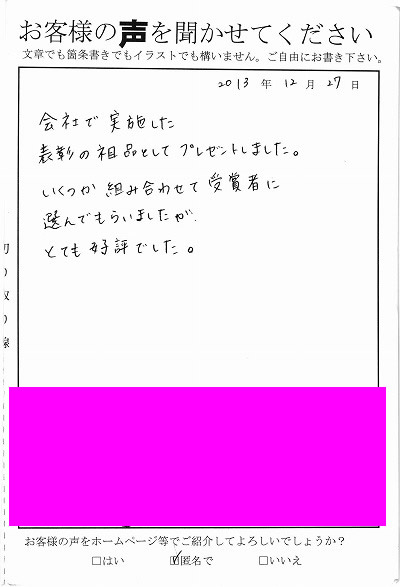 お客様の声を聞かせてください
文章でも箇条書きでもイラストでも構いません。ご自由にお書き下さい。
2013 年 12 月 27 日
会社で実施した
表彰の祖品としてプレゼントしました。
いくつか組み合わせて受賞者に
選んでもらいましたが
とても好評でした。
切り取り線
お客様の声をホームページ等でご紹介してよろしいでしょうか？
□はい ☑匿名で □いいえ